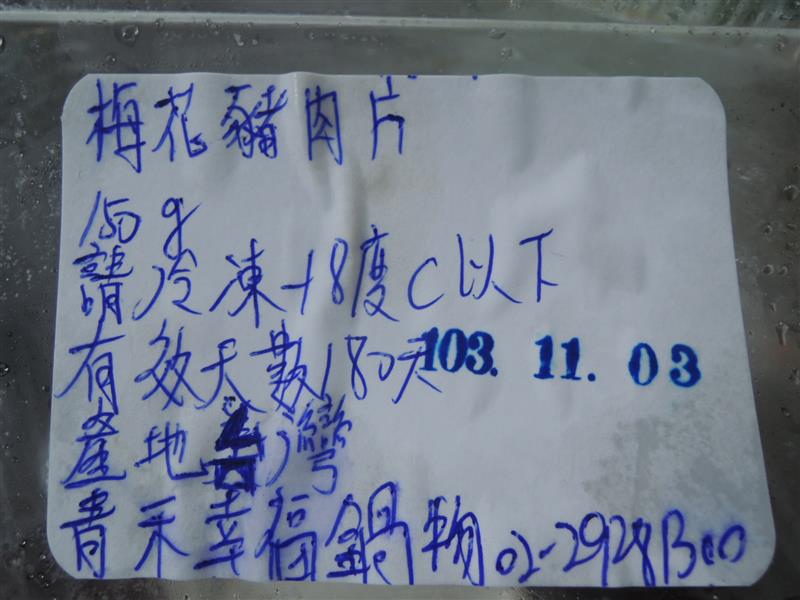 梅花豬肉片
150g
請冷凍-18度C以下
有效天數180天 103. 11. 03
產地台灣
青禾幸福鍋物 02-29281300